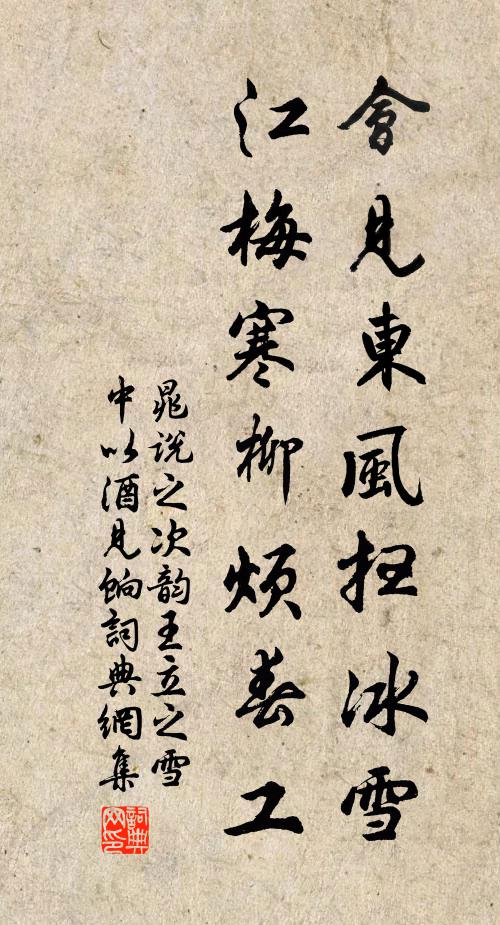 會見東風扫冰雪
江梅寒柳煩春工
晁說之次韵王立之雪
中以酒見餉詞典網集
詞典网印